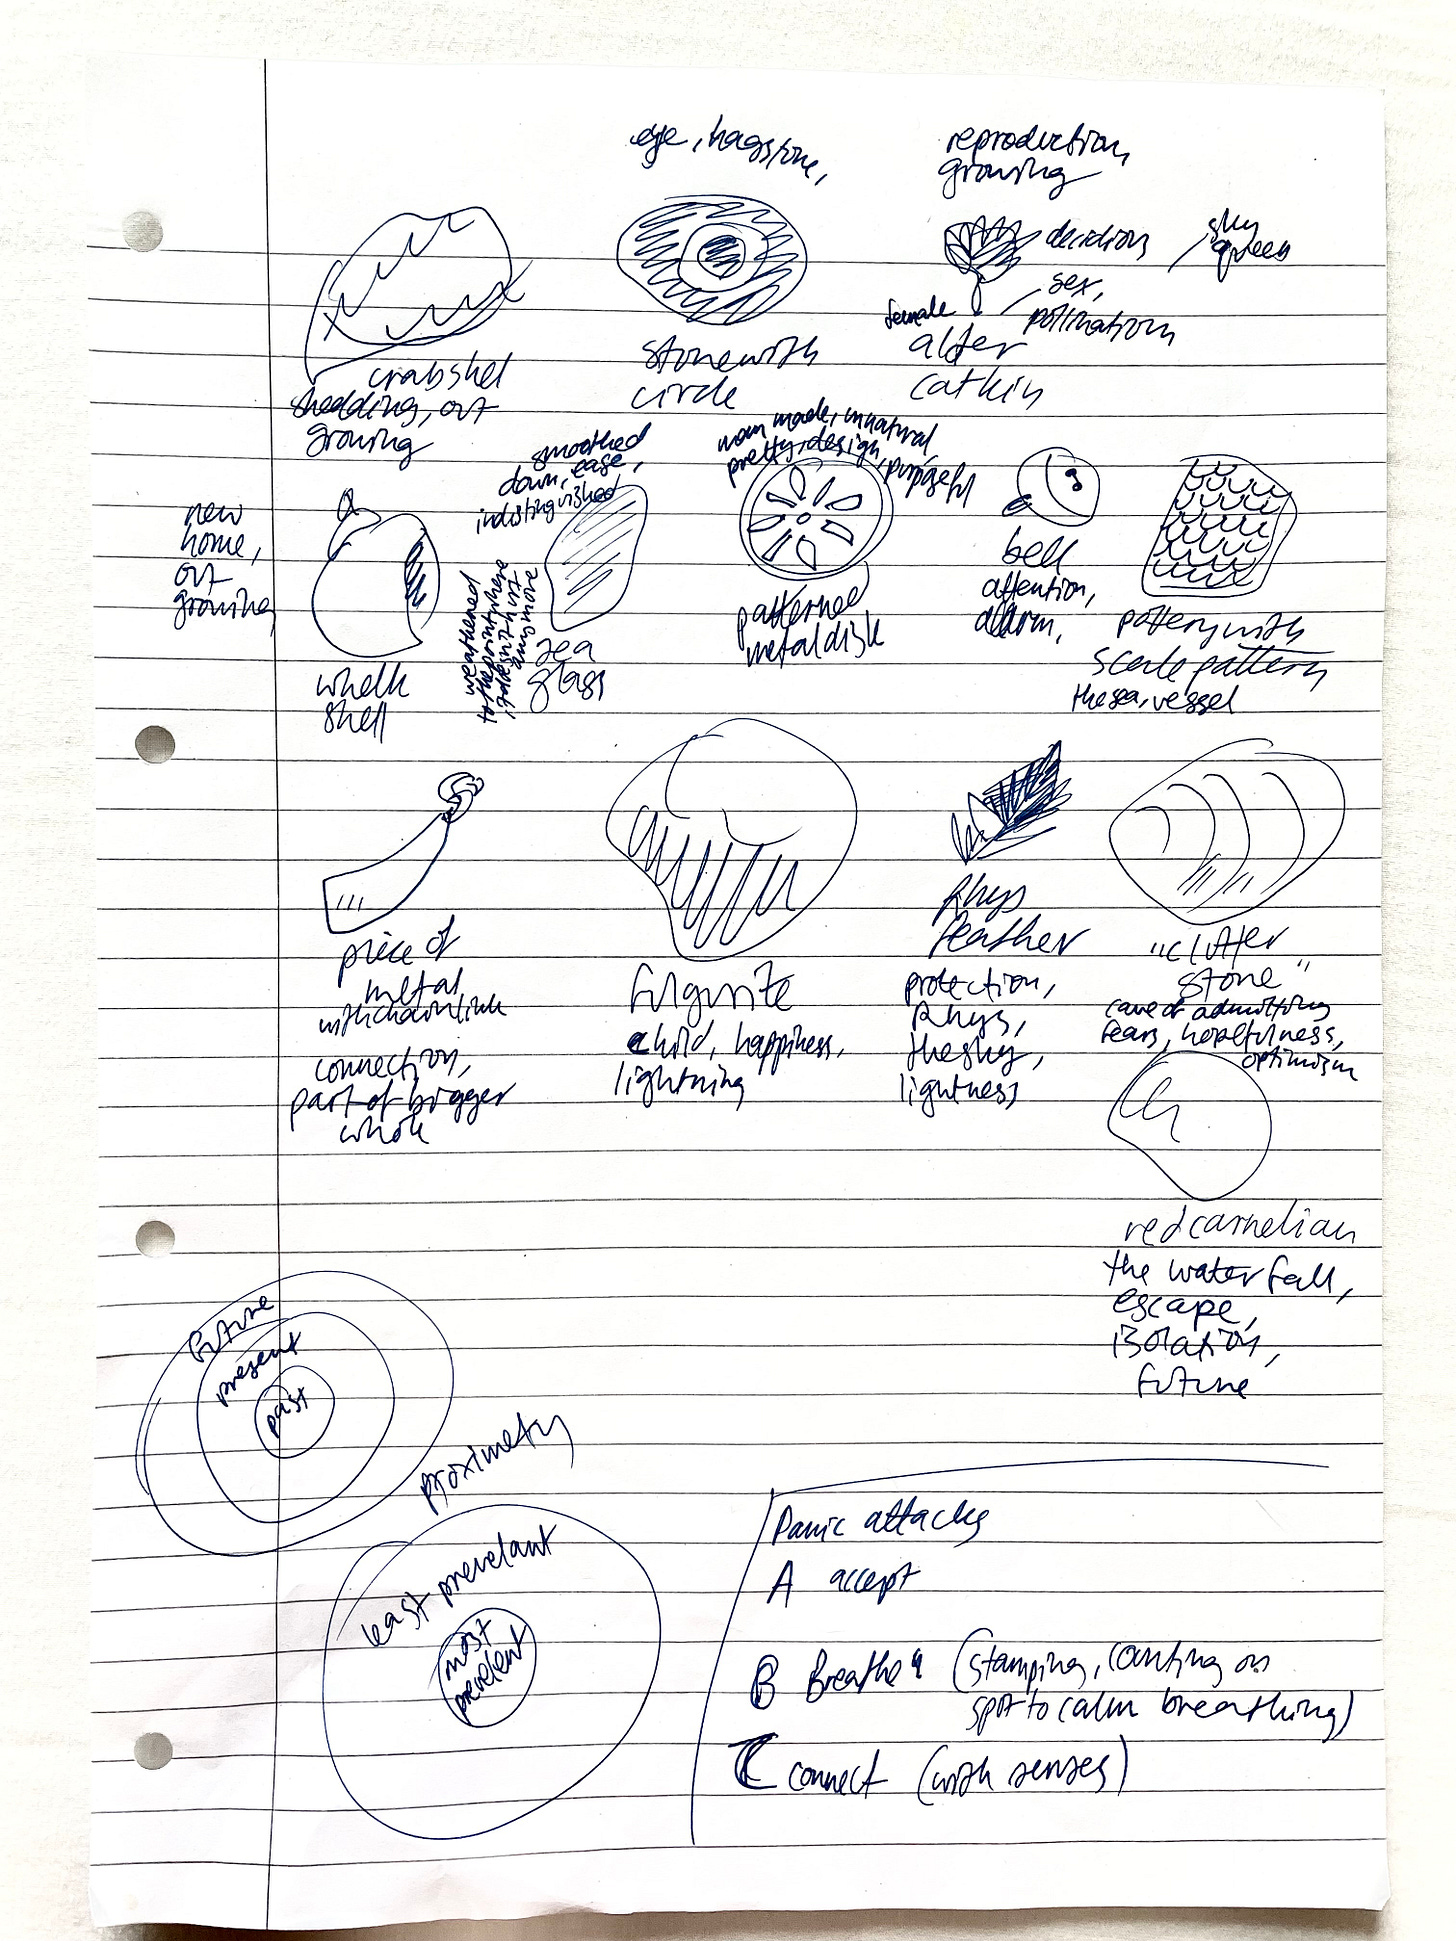 eye, hagstone,
reproduction,
growing
decidious
sex,
pollination
female
alder
catkin
stone with
circle
crab shell
shedding, out
growing
man made, unnatural,
pretty, design, purposeful
smoothed
down, ease,
indistinguished
weathered
to the point where
it doesn't hurt
anymore
sea
glass
new
home,
out
growing
whelk
shell
patterned
metal disk
bell
attention,
alarm,
pottery with
scale pattern
the sea, vessel
piece of
metal
with chain link
connection,
part of bigger
whole
fulgurite
child, happiness,
lightning
Rhys
feather
protection,
Rhys,
the sky,
lightness
"clutter
stone"
cave of admitting
fears, hopefulness,
optimism
red carnelian
the waterfall,
escape,
isolation,
future
future
present
past
proximety
least prevelant
most
prevelent
Panic attacks
A accept
B Breathe (stamping, counting on
spot to calm breathing)
C connect (with senses)